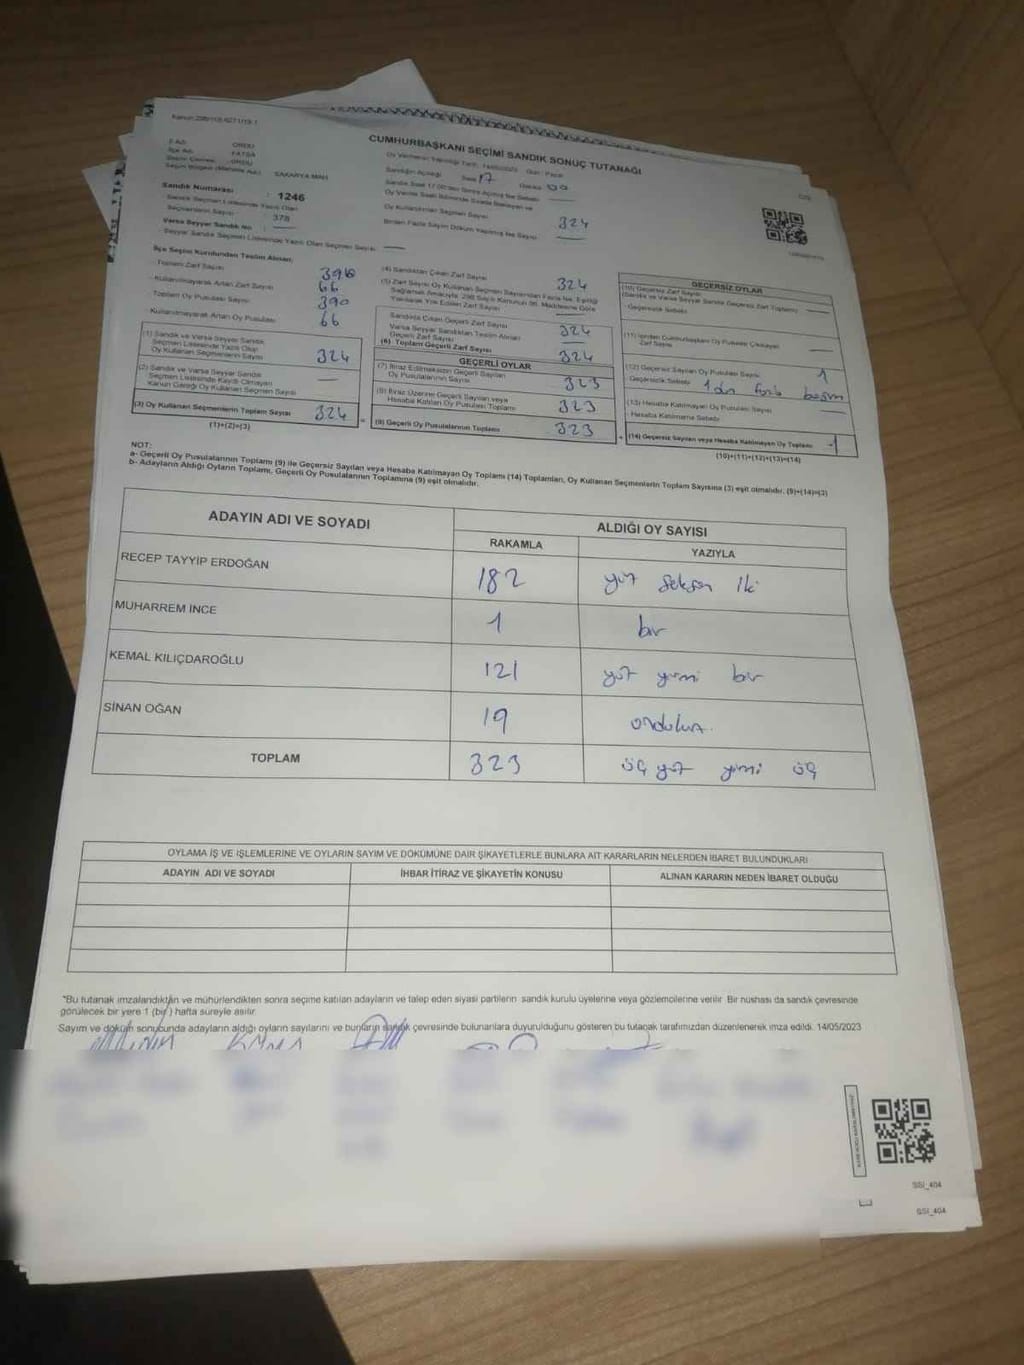 Kanun:298/105-6271/19-1
CUMHURBAŞKANI SEÇİMİ SANDIK SONUÇ TUTANAĞI
İl Adı: ORDU
İlçe Adı: FATSA
Seçim Çevresi: ORDU
SAKARYA MAH.
Sandık Numarası : 1246
Sandık Seçmen Listesinde Yazılı Olan
Seçmenlerin Sayısı : 378
Varsa Seyyar Sandık No :
Seyyar Sandık Seçmen Listesinde Yazılı Olan Seçmen Sayısı
Sandığın Açıldığı Saat 17 Dakika 00
Oy Kullandırılan Seçmen Sayısı 324
Birden Fazla Sayım Döküm Yapılmış İse Sayısı
İlçe Seçim Kurulundan Teslim Alınan;
Toplam Zarf Sayısı 390
Kullanılmayarak Artan Zarf Sayısı 66
Toplam Oy Pusulası Sayısı 390
Kullanılmayarak Artan Oy Pusulası 66
(1) Sandık ve Varsa Seyyar Sandık
Seçmen Listesinde Yazılı Olup
Oy Kullanan Seçmenlerin Sayısı 324
(2) Sandık ve Varsa Seyyar Sandık
Seçmen Listesinde Kaydı Olmayan
Kanun Gereği Oy Kullanan Seçmen Sayısı
(3) Oy Kullanan Seçmenlerin Toplam Sayısı 324
(1)+(2)=(3)
(4) Sandıktan Çıkan Zarf Sayısı 324
(5) Zarf Sayısı Oy Kullanan Seçmen Sayısından Fazla İse, Eşitliği
Sağlamak Amacıyla; 298 Sayılı Kanunun 98. Maddesine Göre
Yakılarak Yok Edilen Zarf Sayısı
Sandıkta Çıkan Geçerli Zarf Sayısı 324
Varsa Seyyar Sandıktan Teslim Alınan
Geçerli Zarf Sayısı
(6) Toplam Geçerli Zarf Sayısı 324
GEÇERLİ OYLAR
(7) İtiraz Edilmeksizin Geçerli Sayılan
Oy Pusulalarının Sayısı 323
(8) İtiraz Üzerine Geçerli Sayılan veya
Hesaba Katılan Oy Pusulası Toplamı 323
(9) Geçerli Oy Pusulalarının Toplamı 323
GEÇERSİZ OYLAR
(10) Geçersiz Zarf Sayısı
(Sandık ve Varsa Seyyar Sandık Geçersiz Zarf Toplamı)
Geçersizlik Sebebi
(11) İçinden Cumhurbaşkanı Oy Pusulası Çıkmayan
Zarf Sayısı
(12) Geçersiz Sayılan Oy Pusulası Sayısı 1
Geçersizlik Sebebi 1 den
(13) Hesaba Katılmayan Oy Pusulası Sayısı
Hesaba Katılmama Sebebi
(14) Geçersiz Sayılan veya Hesaba Katılmayan Oy Toplamı 1
(10)+(11)+(12)+(13)=(14)
NOT:
a- Geçerli Oy Pusulasının Toplamı (9) ile Geçersiz Sayılan veya Hesaba Katılmayan Oy Toplamı (14) Toplamları, Oy Kullanan Seçmenlerin Toplam Sayısına (3) eşit olmalıdır. (9)+(14)=(3)
b- Adayların Aldığı Oyların Toplamı, Geçerli Oy Pusulalarının Toplamına (9) eşit olmalıdır.
ADAYIN ADI VE SOYADI
ALDIĞI OY SAYISI
RAKAMLA YAZIYLA
RECEP TAYYİP ERDOĞAN 182 yüz seksen iki
MUHARREM İNCE 1 bir
KEMAL KILIÇDAROĞLU 121 yüz yirmi bir
SİNAN OĞAN 19 ondokuz
TOPLAM 323 üç yüz yirmi üç
OYLAMA İŞ VE İŞLEMLERİNE VE OYLARIN SAYIM VE DÖKÜMÜNE DAİR ŞİKAYETLERLE BUNLARA AİT KARARLARIN NELERDEN İBARET BULUNDUKLARI
ADAYIN ADI VE SOYADI İHBAR İTİRAZ VE ŞİKAYETİN KONUSU ALINAN KARARIN NEDEN İBARET OLDUĞU
*Bu tutanak imzalandıktan ve mühürlendikten sonra seçime katılan adayların ve talep eden siyasi partilerin sandık kurulu üyelerine veya gözlemcilerine verilir. Bir nüshası da sandık çevresinde
görülecek bir yere 1 (bir) hafta süreyle asılır.
Sayım ve döküm sonucunda adayların aldığı oyların sayılarını ve bunların sandık çevresinde bulunanlara duyurulduğunu gösteren bu tutanak tarafımızdan düzenlenerek imza edildi. 14/05/2023
GSI_404
GSI_404